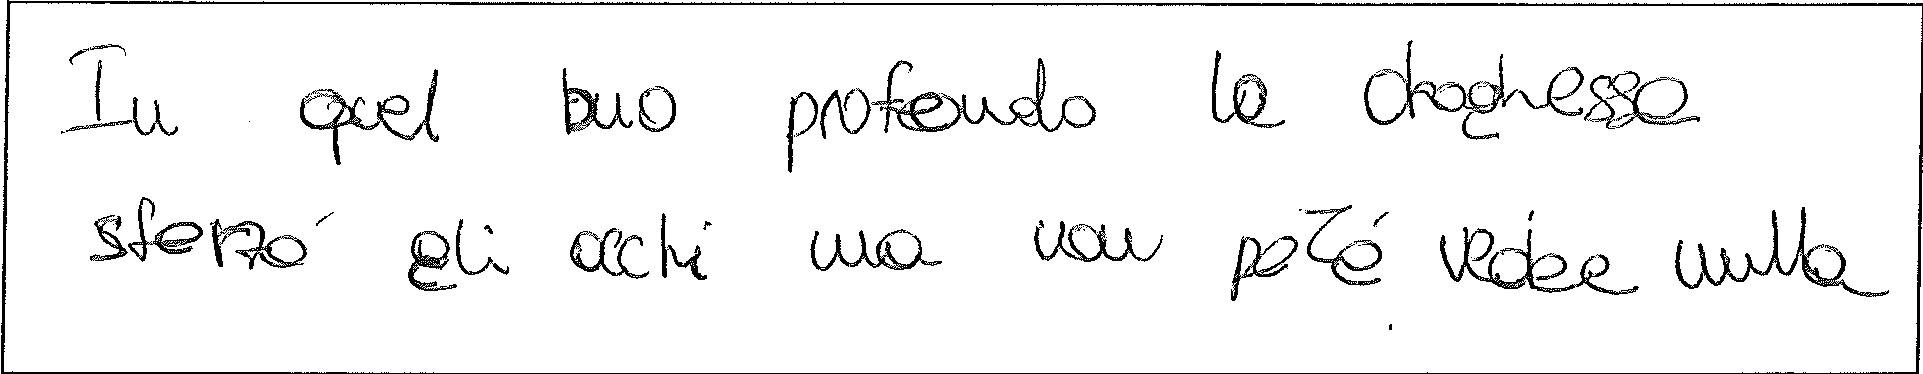 In quel buio profondo la draghessa
sferzó gli occhi ma non poté vedee nulla